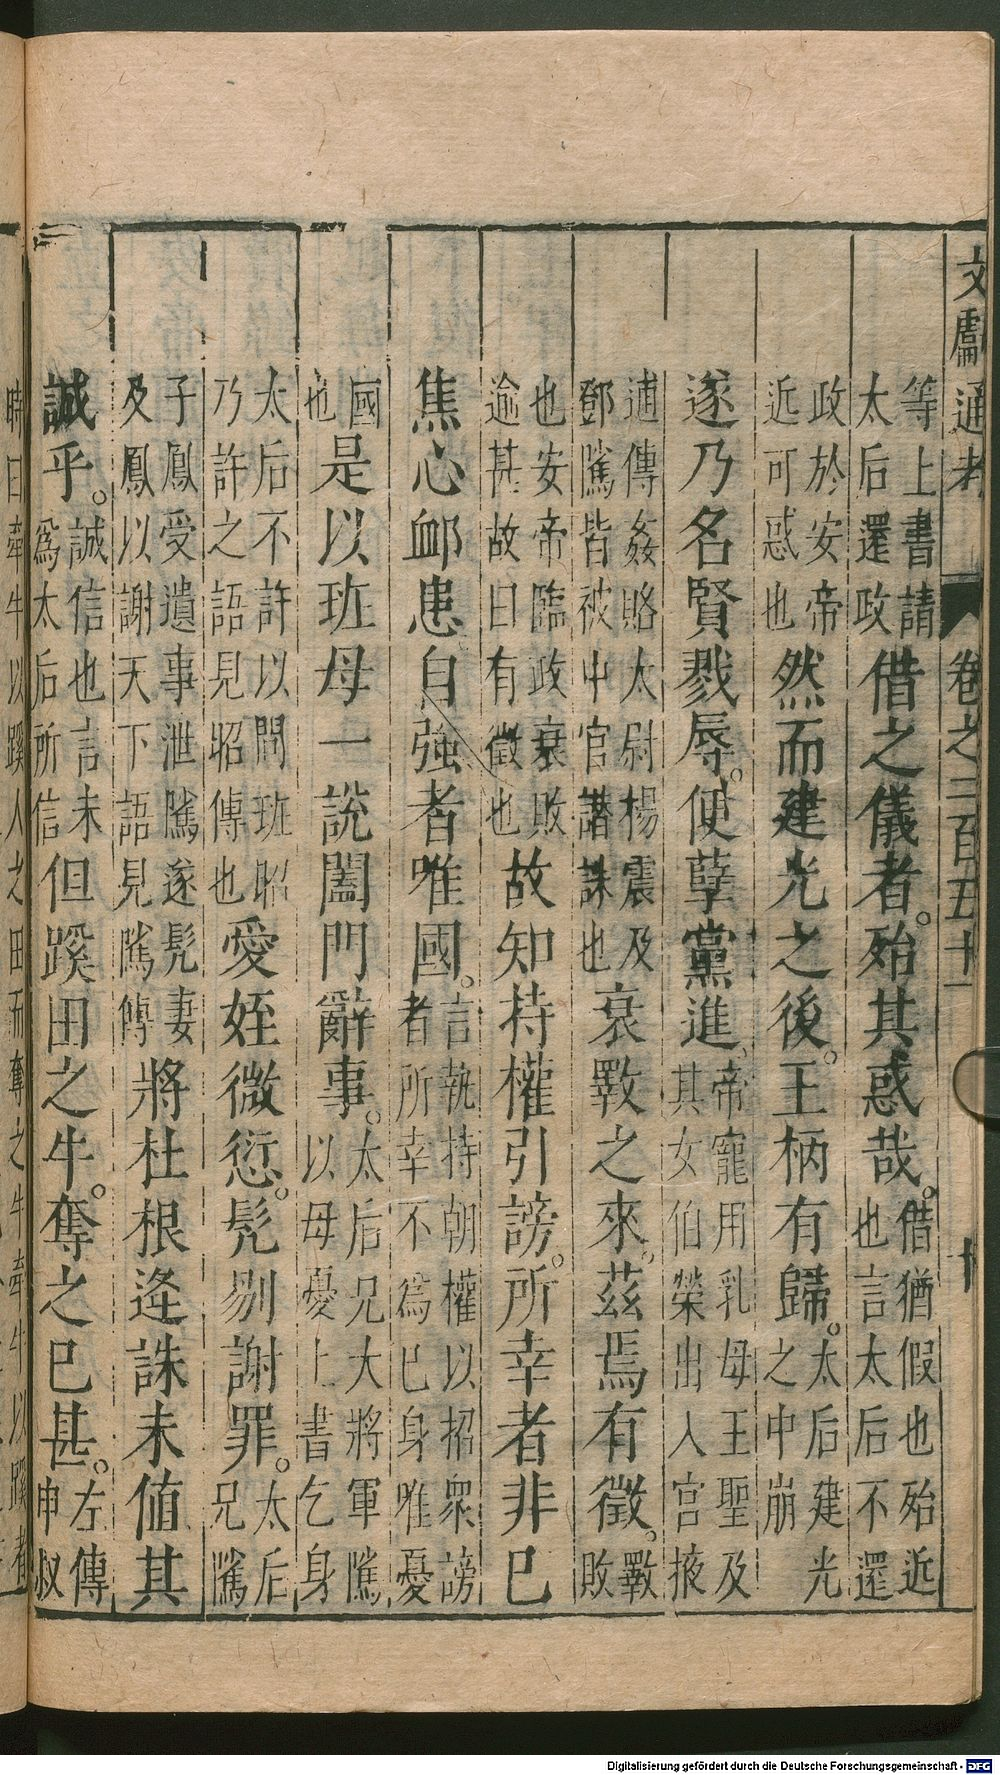 文獻通考 卷之二百五十一 十
等上書請太后還政借之儀者。殆其惑哉。借猶假也殆近也言太后不還
政於安帝近可惑也然而建光之後。王柄有歸。太后建光之中崩
遂乃名賢戮辱。便孽黨進。帝寵用乳母王聖及其女伯榮出入宮掖
通傳姦賂太尉楊震及鄧騭皆被中官譖誅也衰斁之來。茲焉有徵。斁敗
也安帝臨政衰敗逾甚故曰有徵也故知持權引謗。所幸者非已
焦心卹患自強者唯國。言執持朝權以招衆謗者所幸不為已身唯憂
國也是以班母一說闔門辭事。太后兄大將軍騭以母憂上書乞身
太后不許以問班昭乃許之語見昭傳也愛姪微愆。髡剔謝罪。太后兄騭
子鳳受遺事泄騭遂髡妻及鳳以謝天下語見騭傳將杜根逄誅未值其
誠乎。誠信也言未為太后所信但蹊田之牛。奪之已甚。左傳申叔
時曰牽牛以蹊人之田而奪之牛牽牛以蹊者
Digitalisierung gefördert durch die Deutsche Forschungsgemeinschaft - DFG